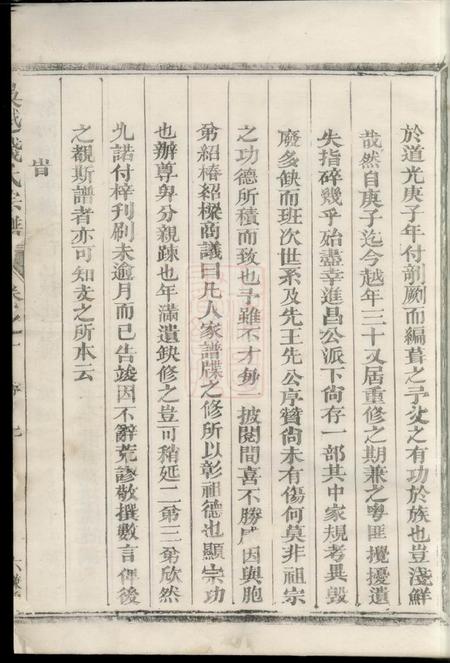 於道光庚子年付剞劂而編葺之予父之有功於族也豈淺鮮
哉然自庚子迄今越年三十又居重修之期兼之粵匪攪擾遺
失指碎幾乎殆盡幸進昌公派下尙存一部其中家規考異毀
廢多缺而班次世系及先王先公序贊尙未有傷何莫非祖宗
之功德所積而致也予雖不才每一披閱間喜不勝屈因與胞
弟紹椿紹樑商議曰凡人家譜牒之修所以彰祖德也顯宗功
也辦尊卑分親踈也年滿遺缺修之豈可稍延二弟三弟欣然
允諾付梓刊刷未逾月而已告竣因不辭荒謬敬撰數言俾後
之覩斯譜者亦可知攴之所本云
旹
吳越錢氏宗譜 卷之一 序